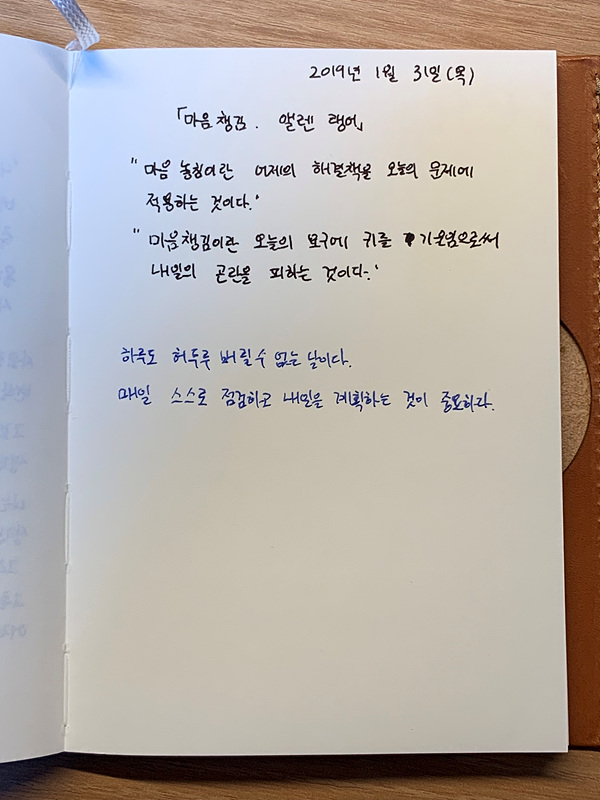 2019년 1월 31일(목)
「마음챙김. 앨렌 랭어」
"마음 놓침이란 어제의 해결책을 오늘의 문제에
적용하는 것이다.'
"마음챙김이란 오늘의 요구에 귀를 기울임으로써
내일의 곤란을 피하는 것이다.'
하루도 허투루 버릴 수 없는 날이다.
매일 스스로 점검하고 내일을 계획하는 것이 중요하다.